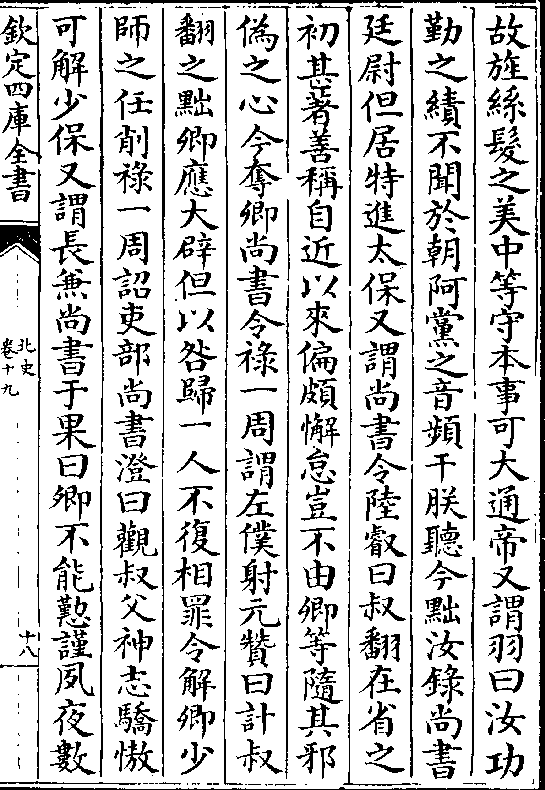 故旌絲髮之美中等守本事可大通帝又謂羽曰汝功
勤之績不聞於朝阿黨之音頻干朕聽今黜汝錄尚書
廷尉但居特進太保又謂尚書令陸叡曰叔翻在省之
初甚著善稱自近以來偏頗懈怠豈不由卿等隨其邪
偽之心今奪卿尚書令祿一周謂左僕射元贊曰計叔
翻之黜卿應大辟但以咎歸一人不復相罪令解卿少
師之任削祿一周詔吏部尚書澄曰觀叔父神志驕慠
可解少保又謂長兼尚書于果曰卿不能懃謹夙夜數
欽定四庫全書
北史
卷十九
十八